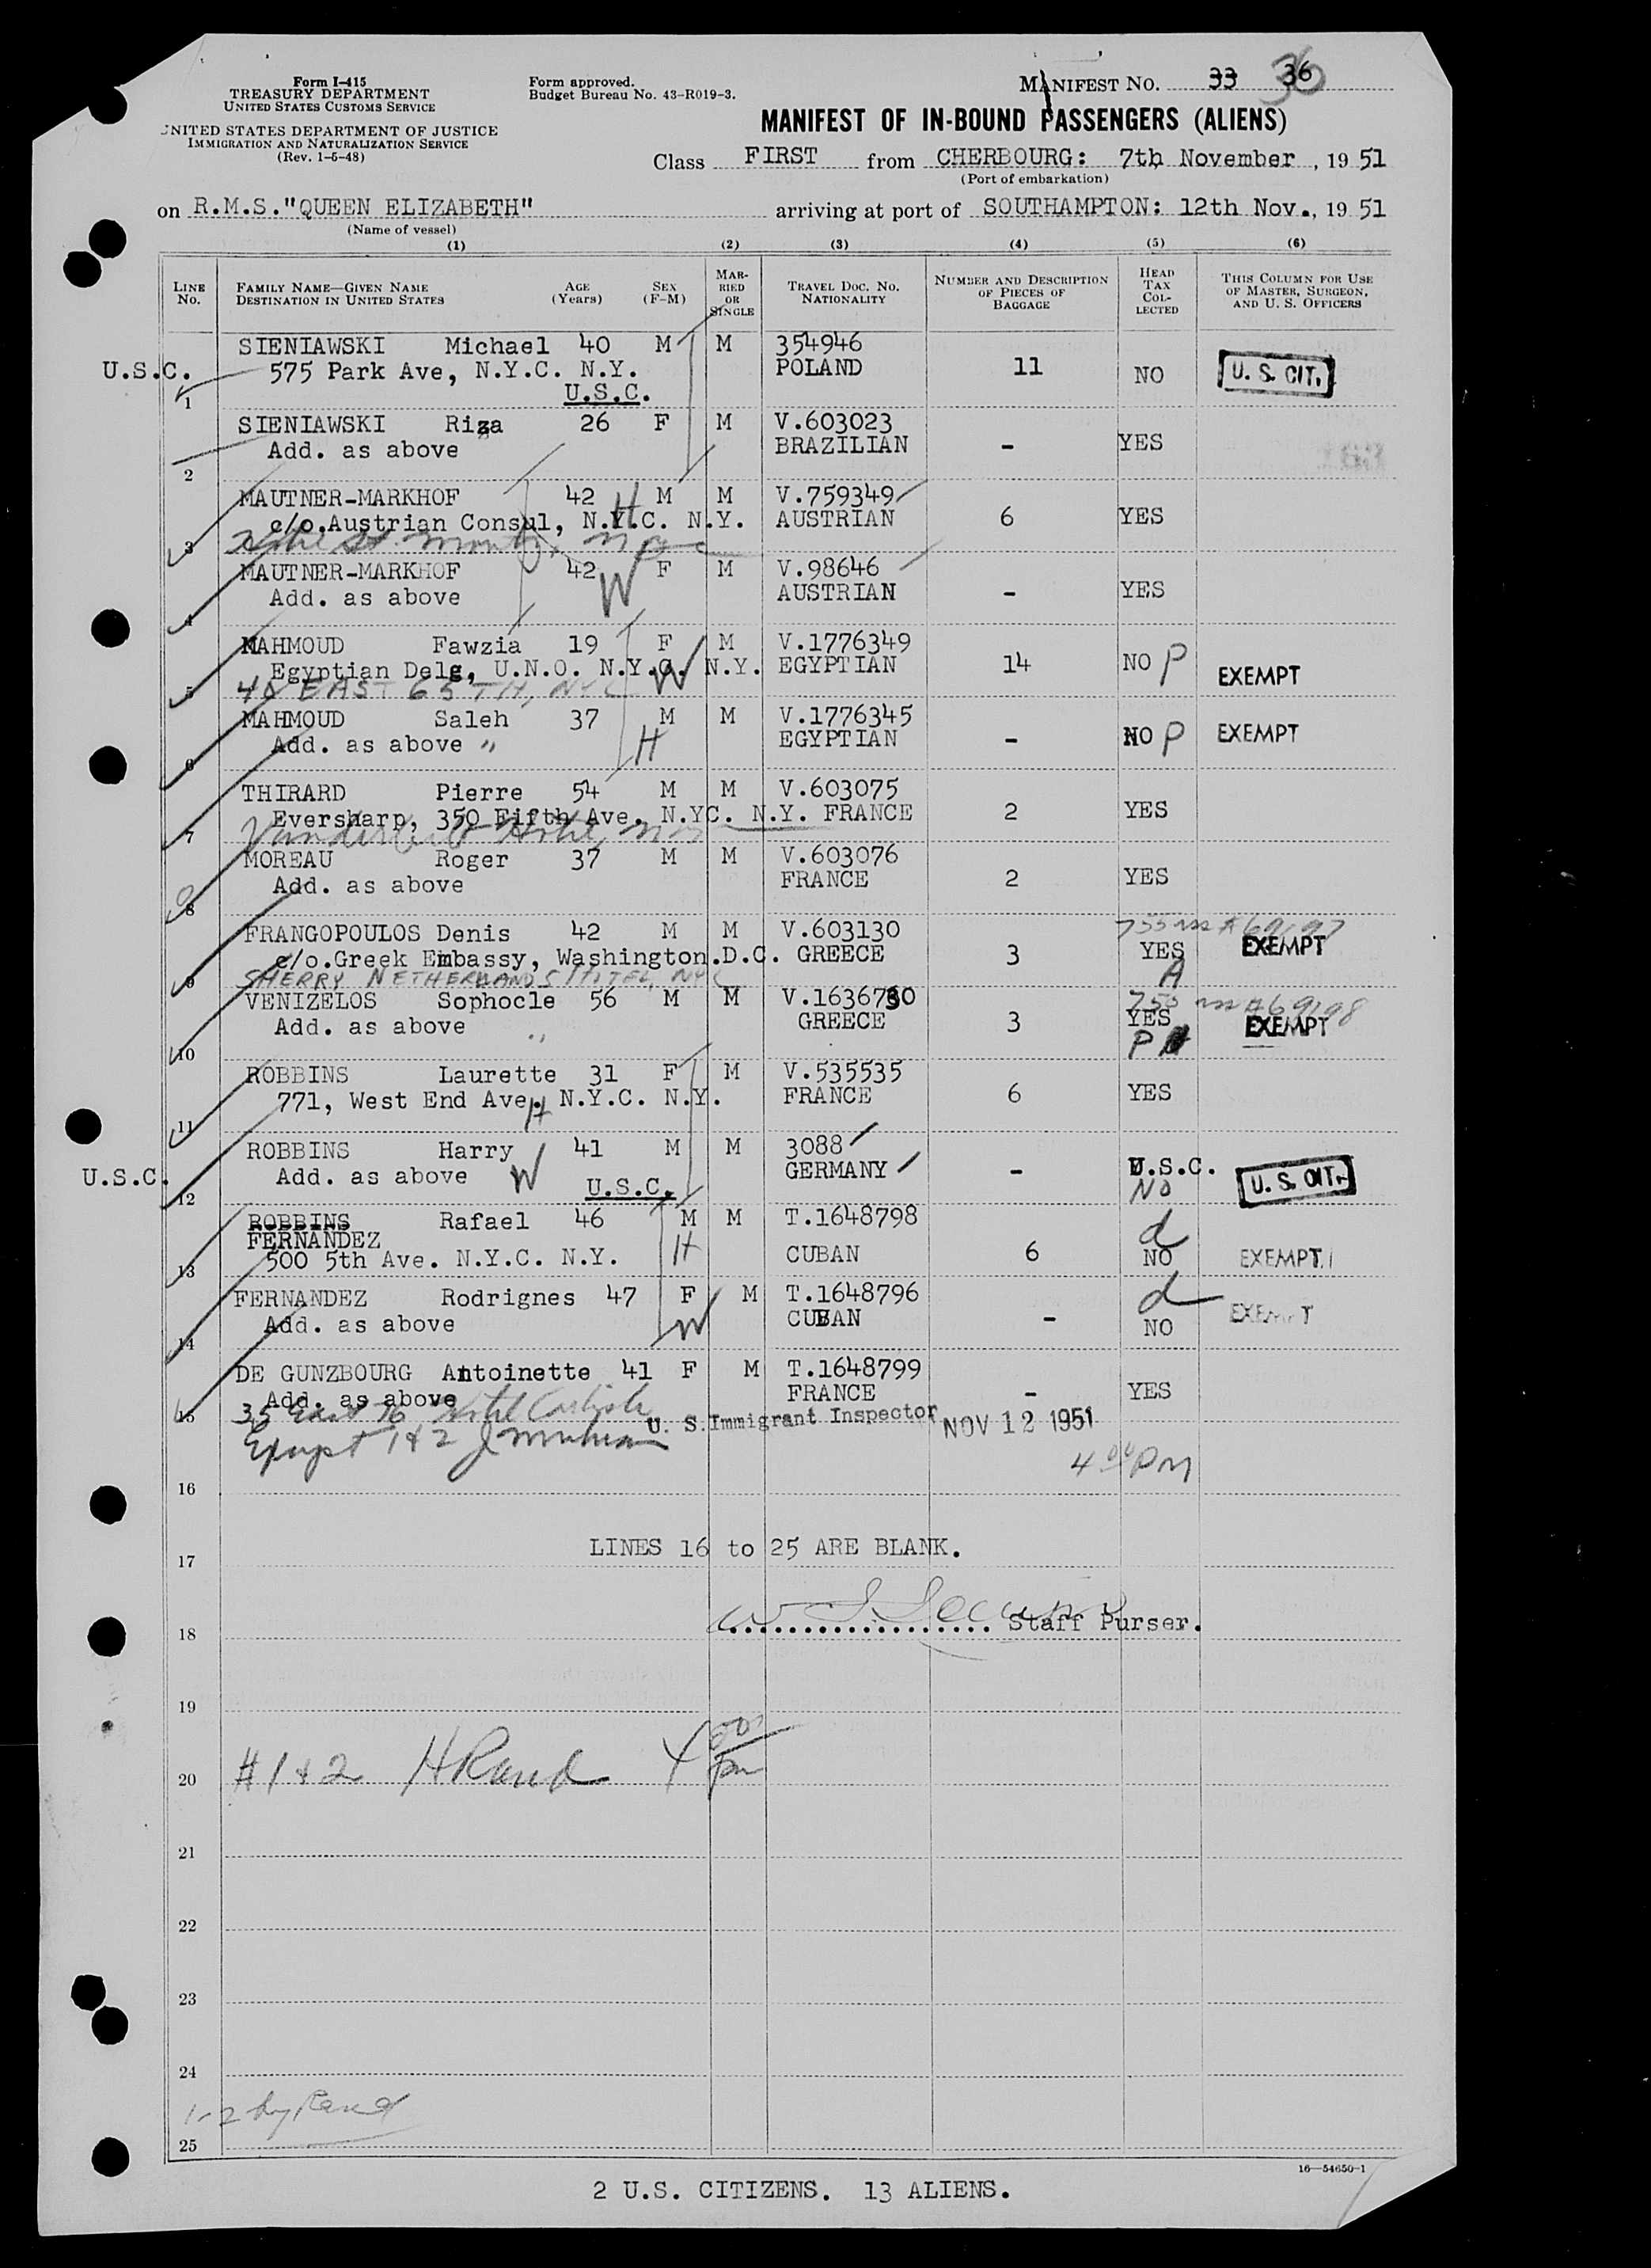 Form I-415
TREASURY DEPARTMENT
UNITED STATES CUSTOMS SERVICE
UNITED STATES DEPARTMENT OF JUSTICE
IMMIGRATION AND NATURALIZATION SERVICE
(Rev. 1-6-48)
Form approved.
Budget Bureau No. 43-R019-3.
MANIFEST NO. 33 36
MANIFEST OF IN-BOUND PASSENGERS (ALIENS)
Class FIRST from CHERBOURG: 7th November, 19 51
(Port of embarkation)
on R.M.S."QUEEN ELIZABETH" arriving at port of SOUTHAMPTON: 12th Nov., 19 51
(Name of vessel)
(1) (2) (3) (4) (5) (6)
LINE NO. FAMILY NAME—GIVEN NAME DESTINATION IN UNITED STATES AGE (Years) SEX (F-M) MARRIED OR SINGLE TRAVEL DOC. NO. NATIONALITY NUMBER AND DESCRIPTION OF PIECES OF BAGGAGE HEAD TAX COLLECTED THIS COLUMN FOR USE OF MASTER, SURGEON, AND U. S. OFFICERS
SIENIAWSKI Michael 40 M M 354946
U.S.C. 575 Park Ave, N.Y.C. N.Y. POLAND 11 NO U. S. CIT.
1 U.S.C.
SIENIAWSKI Riza 26 F M V.603023
Add. as above BRAZILIAN - YES
2
MAUTNER-MARKHOF 42 H M M V.759349
c/o.Austrian Consul, N.Y.C. N.Y. AUSTRIAN 6 YES
3
MAUTNER-MARKHOF 42 W F M V.98646
Add. as above AUSTRIAN - YES
4
MAHMOUD Fawzia 19 F M V.1776349
Egyptian Delg, U.N.O. N.Y.C. N.Y. W EGYPTIAN 14 NO P EXEMPT
5 40 EAST 65TH, NYC
MAHMOUD Saleh 37 M M V.1776345
Add. as above " H EGYPTIAN - NO P EXEMPT
6
THIRARD Pierre 54 M M V.603075
Eversharp, 350 Fifth Ave. N.YC. N.Y. FRANCE 2 YES
7 Vanderbilt Hotel, NYC
MOREAU Roger 37 M M V.603076
Add. as above FRANCE 2 YES
8
FRANGOPOULOS Denis 42 M M V.603130
c/o.Greek Embassy, Washington.D.C. GREECE 3 YES A EXEMPT
9 SHERRY NETHERLANDS HOTEL, NYC
VENIZELOS Sophocle 56 M M V.1636730
Add. as above " GREECE 3 YES P EXEMPT
10
ROBBINS Laurette 31 F M V.535535
771, West End Ave, N.Y.C. N.Y. H FRANCE 6 YES
11
ROBBINS Harry 41 M M 3088
U.S.C. Add. as above W GERMANY - U.S.C. NO U. S. CIT.
12 U.S.C.
ROBBINS Rafael 46 M M T.1648798
FERNANDEZ
500 5th Ave. N.Y.C. N.Y. H CUBAN 6 d NO EXEMPT
13
FERNANDEZ Rodrignes 47 F M T.1648796
Add. as above W CUBAN - d NO EXEMPT
14
DE GUNZBOURG Antoinette 41 F M T.1648799
Add. as above FRANCE - YES
15 35 East 76, Hotel Carlisle
U. S. Immigrant Inspector NOV 12 1951
Except 1 & 2
4 00 PM
16
17 LINES 16 to 25 ARE BLANK.
18 Staff Purser.
19
20 #1 & 2 HRand 4 00 pm
21
22
23
24
1-2 by Rand
25
16—54650-1
2 U.S. CITIZENS. 13 ALIENS.